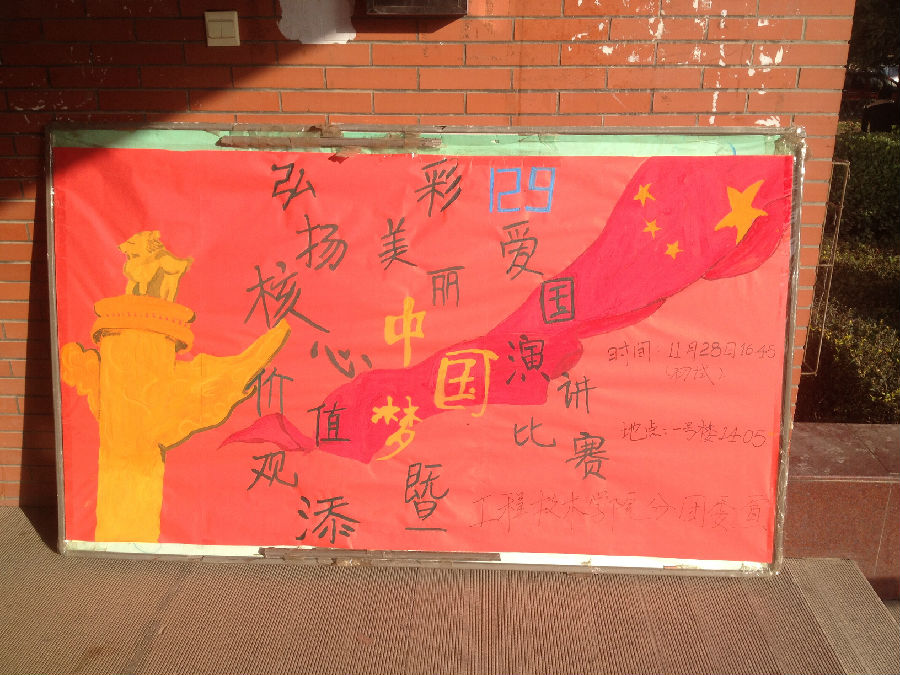 弘扬核心价值观
添彩美丽中国梦
暨
129爱国演讲比赛
时间:11月28日16:45
(初试)
地点:一号楼1405
工程技术学院分团委宣